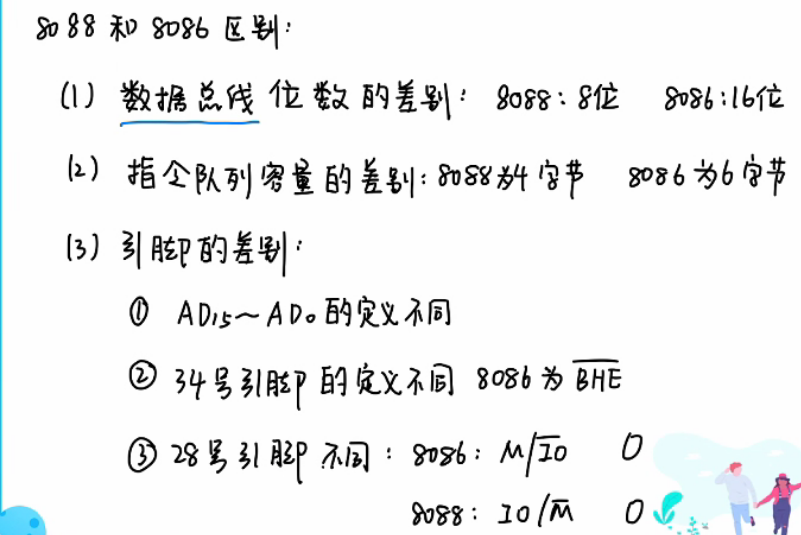 8088和8086区别:
(1) 数据总线位数的差别: 8088:8位 8086:16位
(2) 指令队列容量的差别:8088为4字节 8086为6字节
(3) 引脚的差别:
① AD₁₅~AD₀的定义不同
② 34号引脚的定义不同 8086为B̅H̅E̅
③ 28号引脚不同: 8086: M/I̅O̅ 0
8088: IO/M̅ 0